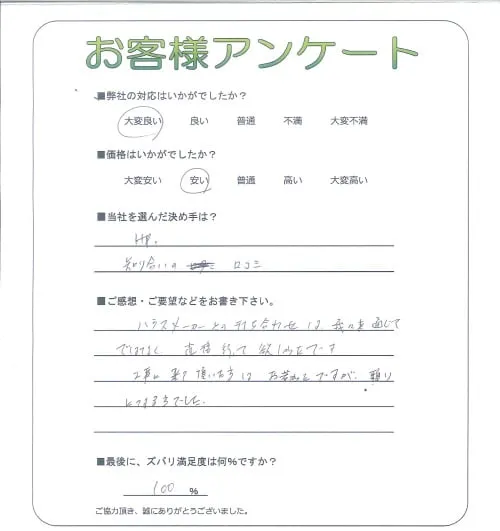 お客様アンケート
■弊社の対応はいかがでしたか？
大変良い 良い 普通 不満 大変不満
■価格はいかがでしたか？
大変安い 安い 普通 高い 大変高い
■当社を選んだ決め手は？
HP。
知り合いの 口コミ
■ご感想・ご要望などをお書き下さい。
ハウスメーカーとの打ち合わせは、 通して
ではなく 直接
工事に来て頂いた方は お若い ですが、頼り
になる方でした。
■最後に、ズバリ満足度は何％ですか？
100 ％
ご協力頂き、誠にありがとうございました。